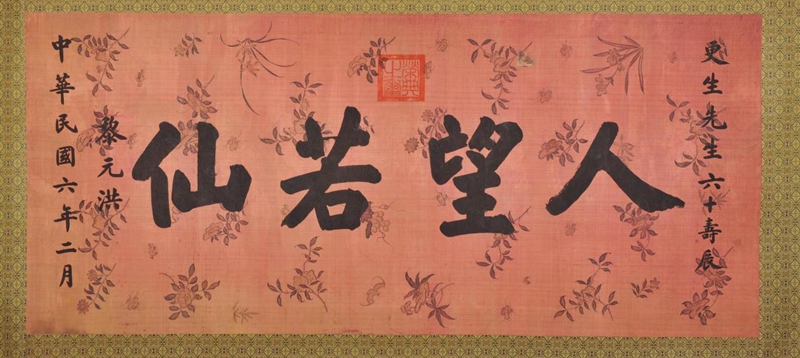 更生先生六十壽辰
榮典之璽
人望若仙
黎元洪
中華民國六年二月